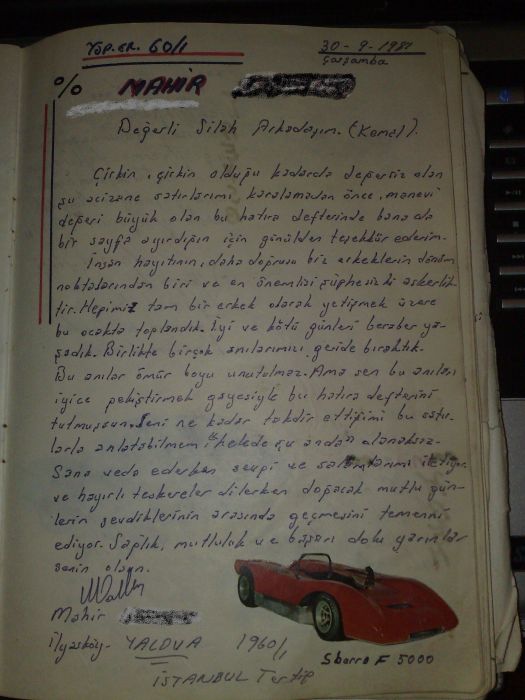 Yap. er. 60/1 30-9-1981
Çarşamba
% MAHİR
Değerli Silah Arkadaşım. (Kemal).
Çirkin, çirkin olduğu kadarda değersiz olan
şu acizane satırlarımı karalamadan önce, manevi
değeri büyük olan bu hatıra defterinde banada
bir sayfa ayırdığın için gönülden teşekkür ederim.
İnsan hayıtının, daha doğrusu biz erkeklerin dönüm
noktalarından biri ve en önemlisi şüphesizki askerlik-
tir. Hepimiz tam bir erkek olarak yetişmek üzere
bu ocakta toplandık. İyi ve kötü günleri beraber ya-
şadık. Birlikte birçok anılarımızı geride bıraktık.
Bu anılar ömür boyu unutulmaz. Ama sen bu anıları
iyice pekiştirmek gayesiyle bu hatıra defterini
tutmuşsun. Seni ne kadar takdir ettiğimi bu satır-
larla anlatabilmem hele de şu anda olanaksız.
Sana veda ederken sevgi ve iletiyor
ve hayırlı teskereler dilerken doğacak mutlu gün-
lerin sevdiklerinin arasında geçmesini temenni
ediyor. Sağlık, mutluluk ve başarı dolu yarınlar
senin olsun.
Mahir
İlyasköy- YALOVA 1960/1
İSTANBUL Tertip
Sbarro F 5000